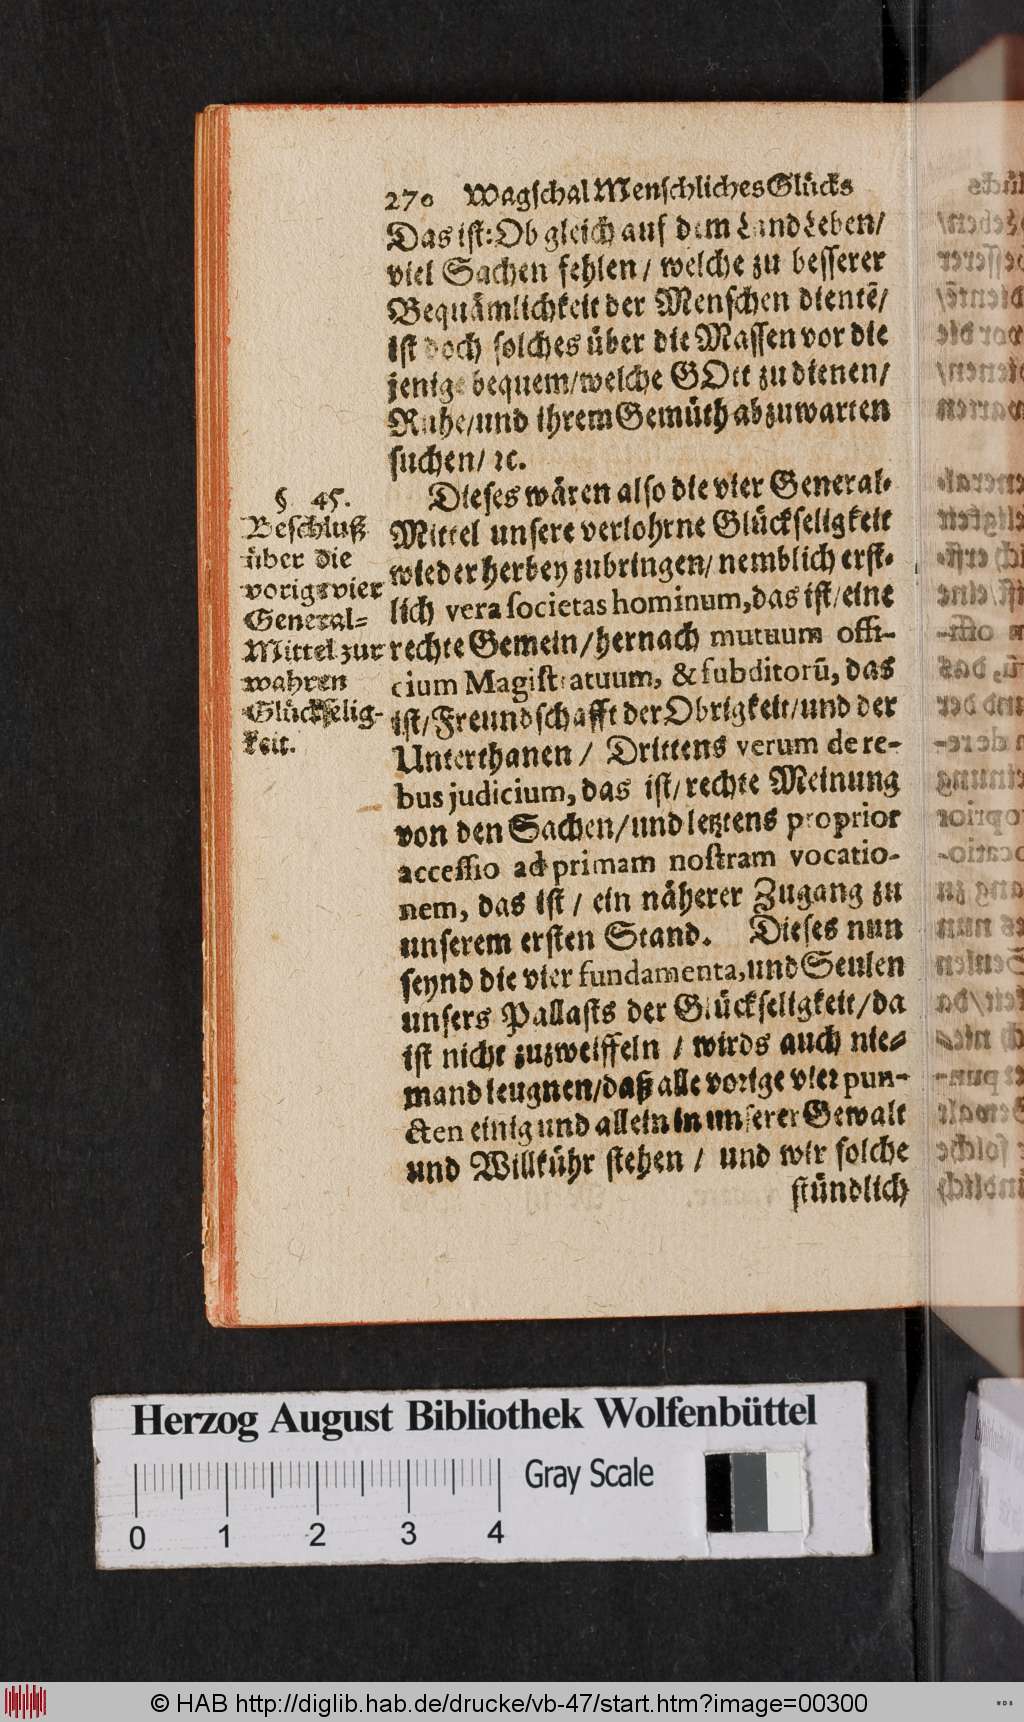 270 Wagschal Menschliches Glücks
Das ist: Ob gleich auf dem Land Leben/
viel Sachen fehlen/ welche zu besserer
Bequämlichkeit der Menschen dientē/
ist doch solches über die Massen vor die
jenige bequem/welche GOtt zu dienen/
Ruhe/und ihrem Gemüth abzuwarten
suchen/ ꝛc.
Dieses wären also die vier General-
Mittel unsere verlohrne Glückseligkeit
wieder herbey zubringen/ nemblich erst-
lich vera societas hominum, das ist/eine
rechte Gemein/hernach mutuum offi-
cium Magistratuum, & subditorū, das
ist/Freundschafft der Obrigkeit/und der
Unterthanen/ Drittens verum de re-
bus judicium, das ist/rechte Meinung
von den Sachen/und letztens proprior
accessio ad primam nostram vocatio-
nem, das ist/ ein näherer Zugang zu
unserem ersten Stand. Dieses nun
seynd die vier fundamenta, und Seulen
unsers Pallasts der Glückseligkeit/da
ist nicht zuzweiffeln/ wirds auch nie-
mand leugnen/daß alle vorige vier pun-
cten einig und allein in unserer Gewalt
und Willkühr stehen/ und wir solche
stündlich
§ 45.
Beschluß
über die
vorige vier
General-
Mittel zur
wahren
Glückselig-
keit.
Herzog August Bibliothek Wolfenbüttel
Gray Scale
0 1 2 3 4
© HAB http://diglib.hab.de/drucke/vb-47/start.htm?image=00300
WDB